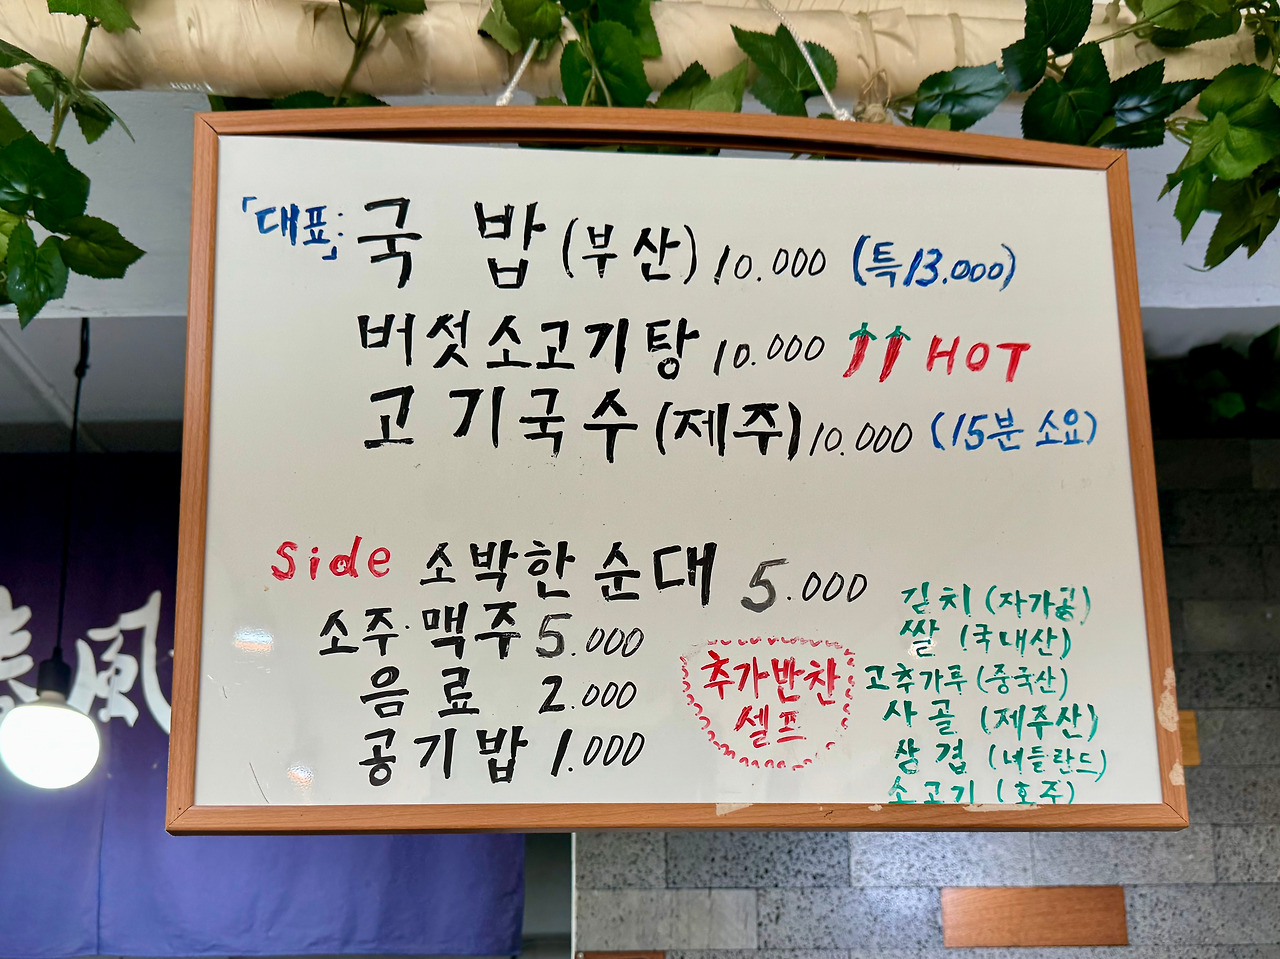 「대표」: 국 밥 (부산) 10.000 (특13.000)
버섯소고기탕 10.000 HOT
고기국수 (제주) 10.000 (15분 소요)
Side 소박한 순대 5.000
소주·맥주 5.000
음료 2.000
공기밥 1.000
추가반찬
셀프
김치 (자가공)
쌀 (국내산)
고추가루 (중국산)
사골 (제주산)
삼겹 (네들란드)
소고기 (호주)
風